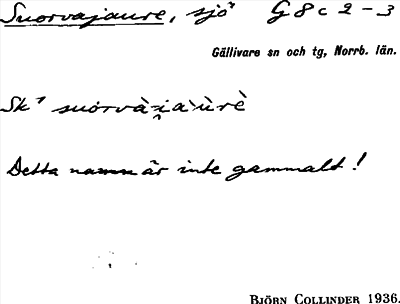 Suorvajaure, sjö G 8 c 2 - 3
Gällivare sn och tg, Norrb. län.
Sk' suorvà-i̯a`ùrè
Detta namn är inte gammalt!
BJÖRN COLLINDER 1936.